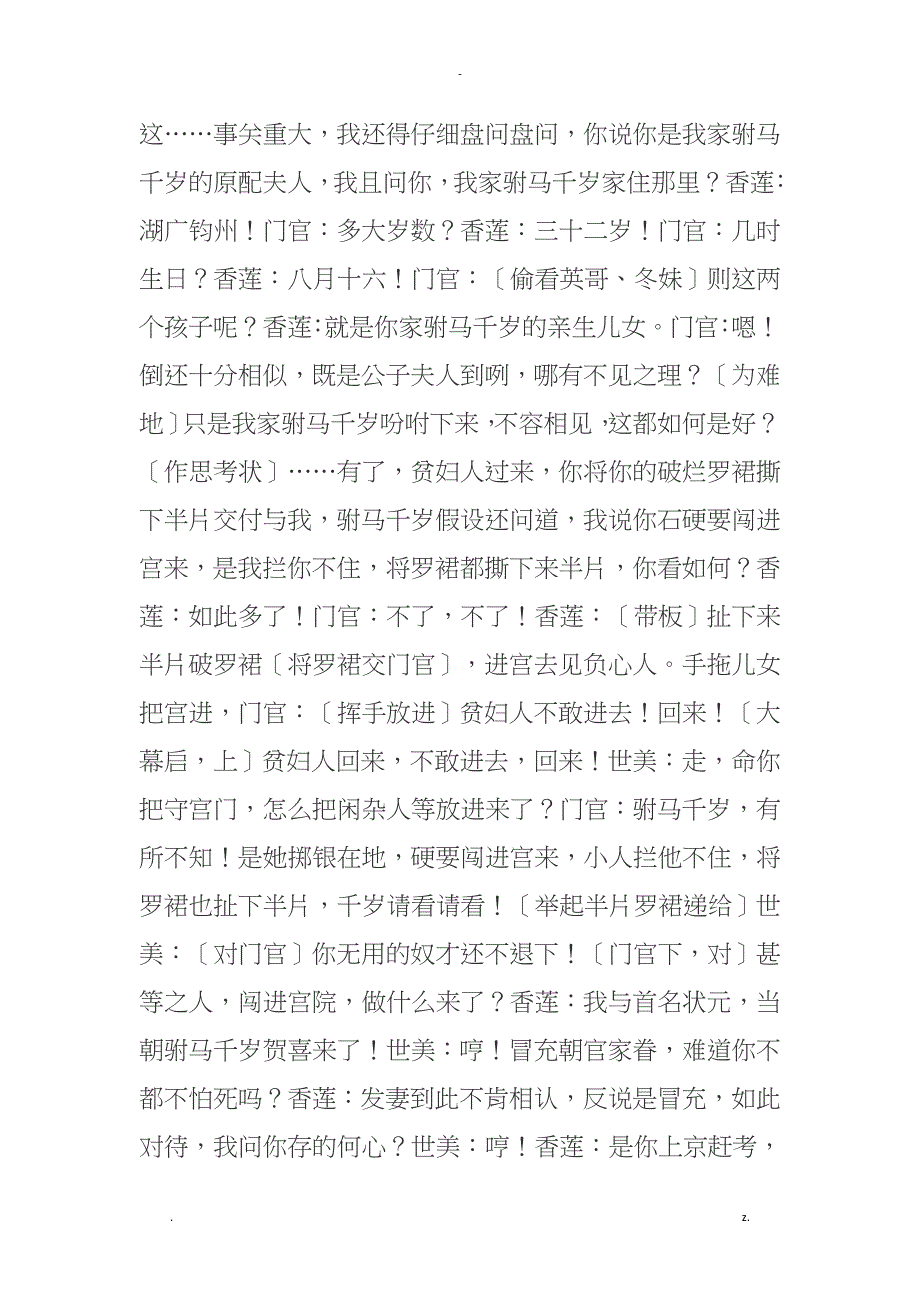 -
这……事关重大，我还得仔细盘问盘问，你说你是我家驸马
千岁的原配夫人，我且问你，我家驸马千岁家住那里？香莲：
湖广钧州！门官：多大岁数？香莲：三十二岁！门官：几时
生日？香莲：八月十六！门官：〔偷看英哥、冬妹〕则这两
个孩子呢？香莲：就是你家驸马千岁的亲生儿女。门官：嗯！
倒还十分相似，既是公子夫人到咧，哪有不见之理？〔为难
地〕只是我家驸马千岁吩咐下来，不容相见，这都如何是好？
〔作思考状〕……有了，贫妇人过来，你将你的破烂罗裙撕
下半片交付与我，驸马千岁假设还问道，我说你石硬要闯进
宫来，是我拦你不住，将罗裙都撕下来半片，你看如何？香
莲：如此多了！门官：不了，不了！香莲：〔带板〕扯下来
半片破罗裙〔将罗裙交门官〕，进宫去见负心人。手拖儿女
把宫进，门官：〔挥手放进〕贫妇人不敢进去！回来！〔大
幕启，上〕贫妇人回来，不敢进去，回来！世美：走，命你
把守宫门，怎么把闲杂人等放进来了？门官：驸马千岁，有
所不知！是她掷银在地，硬要闯进宫来，小人拦他不住，将
罗裙也扯下半片，千岁请看请看！〔举起半片罗裙递给〕世
美：〔对门官〕你无用的奴才还不退下！〔门官下，对〕甚
等之人，闯进宫院，做什么来了？香莲：我与首名状元，当
朝驸马千岁贺喜来了！世美：哼！冒充朝官家眷，难道你不
都不怕死吗？香莲：发妻到此不肯相认，反说是冒充，如此
对待，我问你存的何心？世美：哼！香莲：是你上京赶考，
. z.